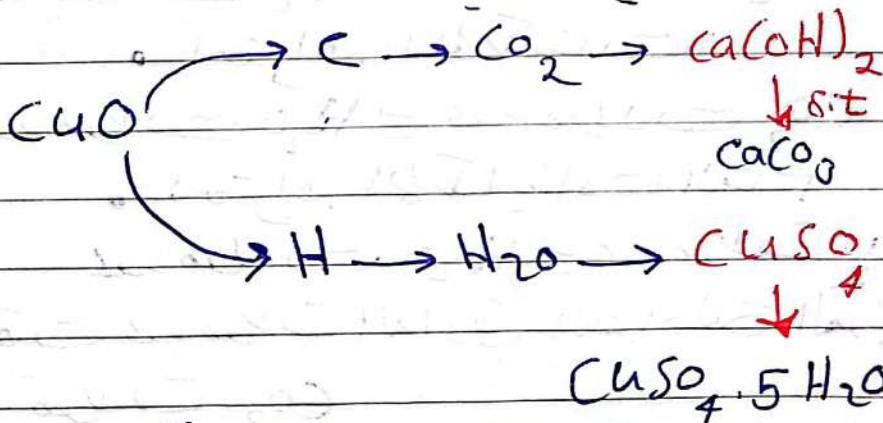 C → CO₂ → Ca(OH)₂
CuO
↓ s.t
CaCO₃
H → H₂O → CuSO₄
↓
CuSO₄.5H₂O